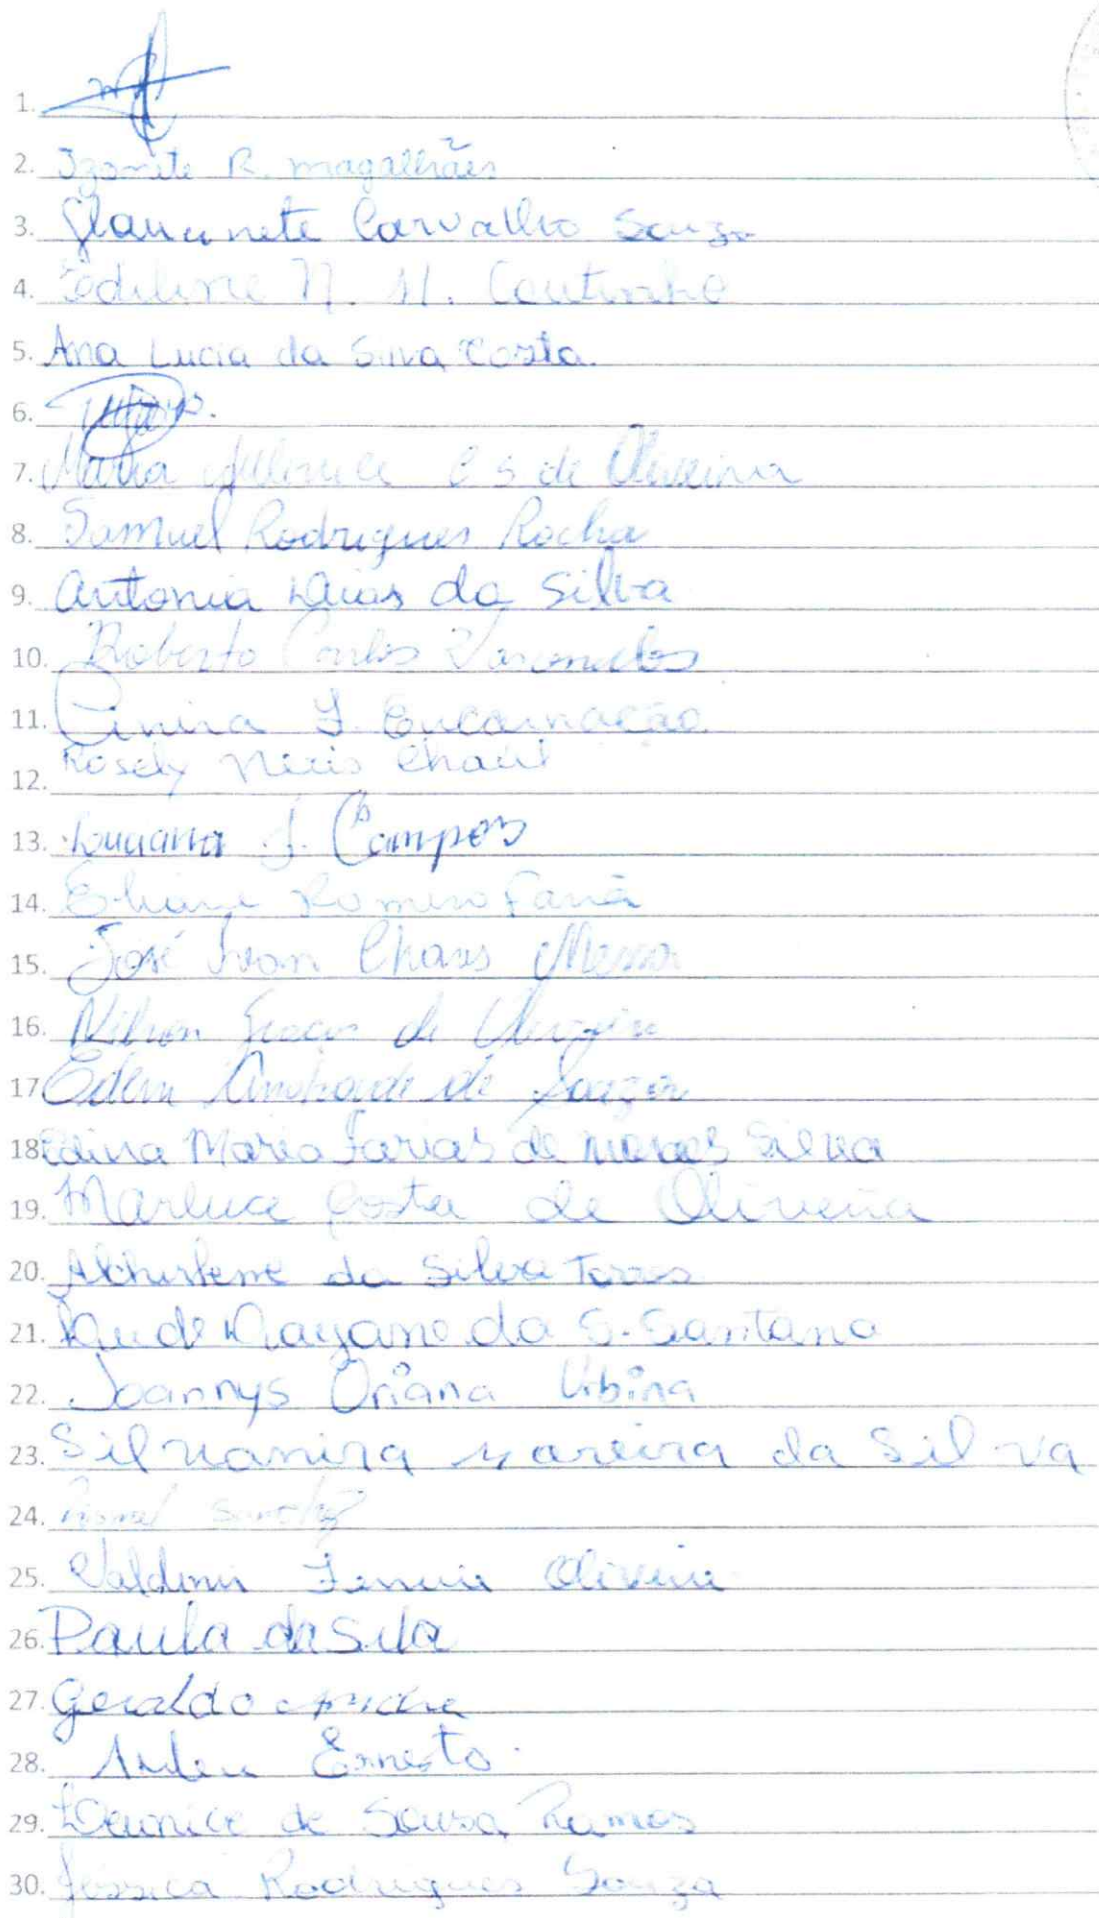 1.
2. Izonete R. Magalhães
3. Glaucinete Carvalho Souza
4. Edilene N. M. Coutinho
5. Ana Lucia da Silva Costa.
6.
7. Maria C S de Oliveira
8. Samuel Rodrigues Rocha
9. Antonia Dias da Silva
10. Roberto Carlos Vasconcelos
11. Cinira F. Encarnação
12. Rosely Neris Chaul
13. Luciana J. Campos
14. Eliane Romero Faria
15. José Ivan Chaves
16. Nilson de Oliveira
17. Edem Andrade de Souza
18. Edina Maria Farias de Moraes Silva
19. Marluce Costa de Oliveira
20. da Silva Torres
21. Dayane da S. Santana
22. Joannys Oriana Urbina
23. Silvanira Moreira da Silva
24.
25. Oliveira
26. Paula da Silva
27. Geraldo
28. Ernesto.
29. Deunice de Sousa Ramos
30. Jéssica Rodrigues Souza